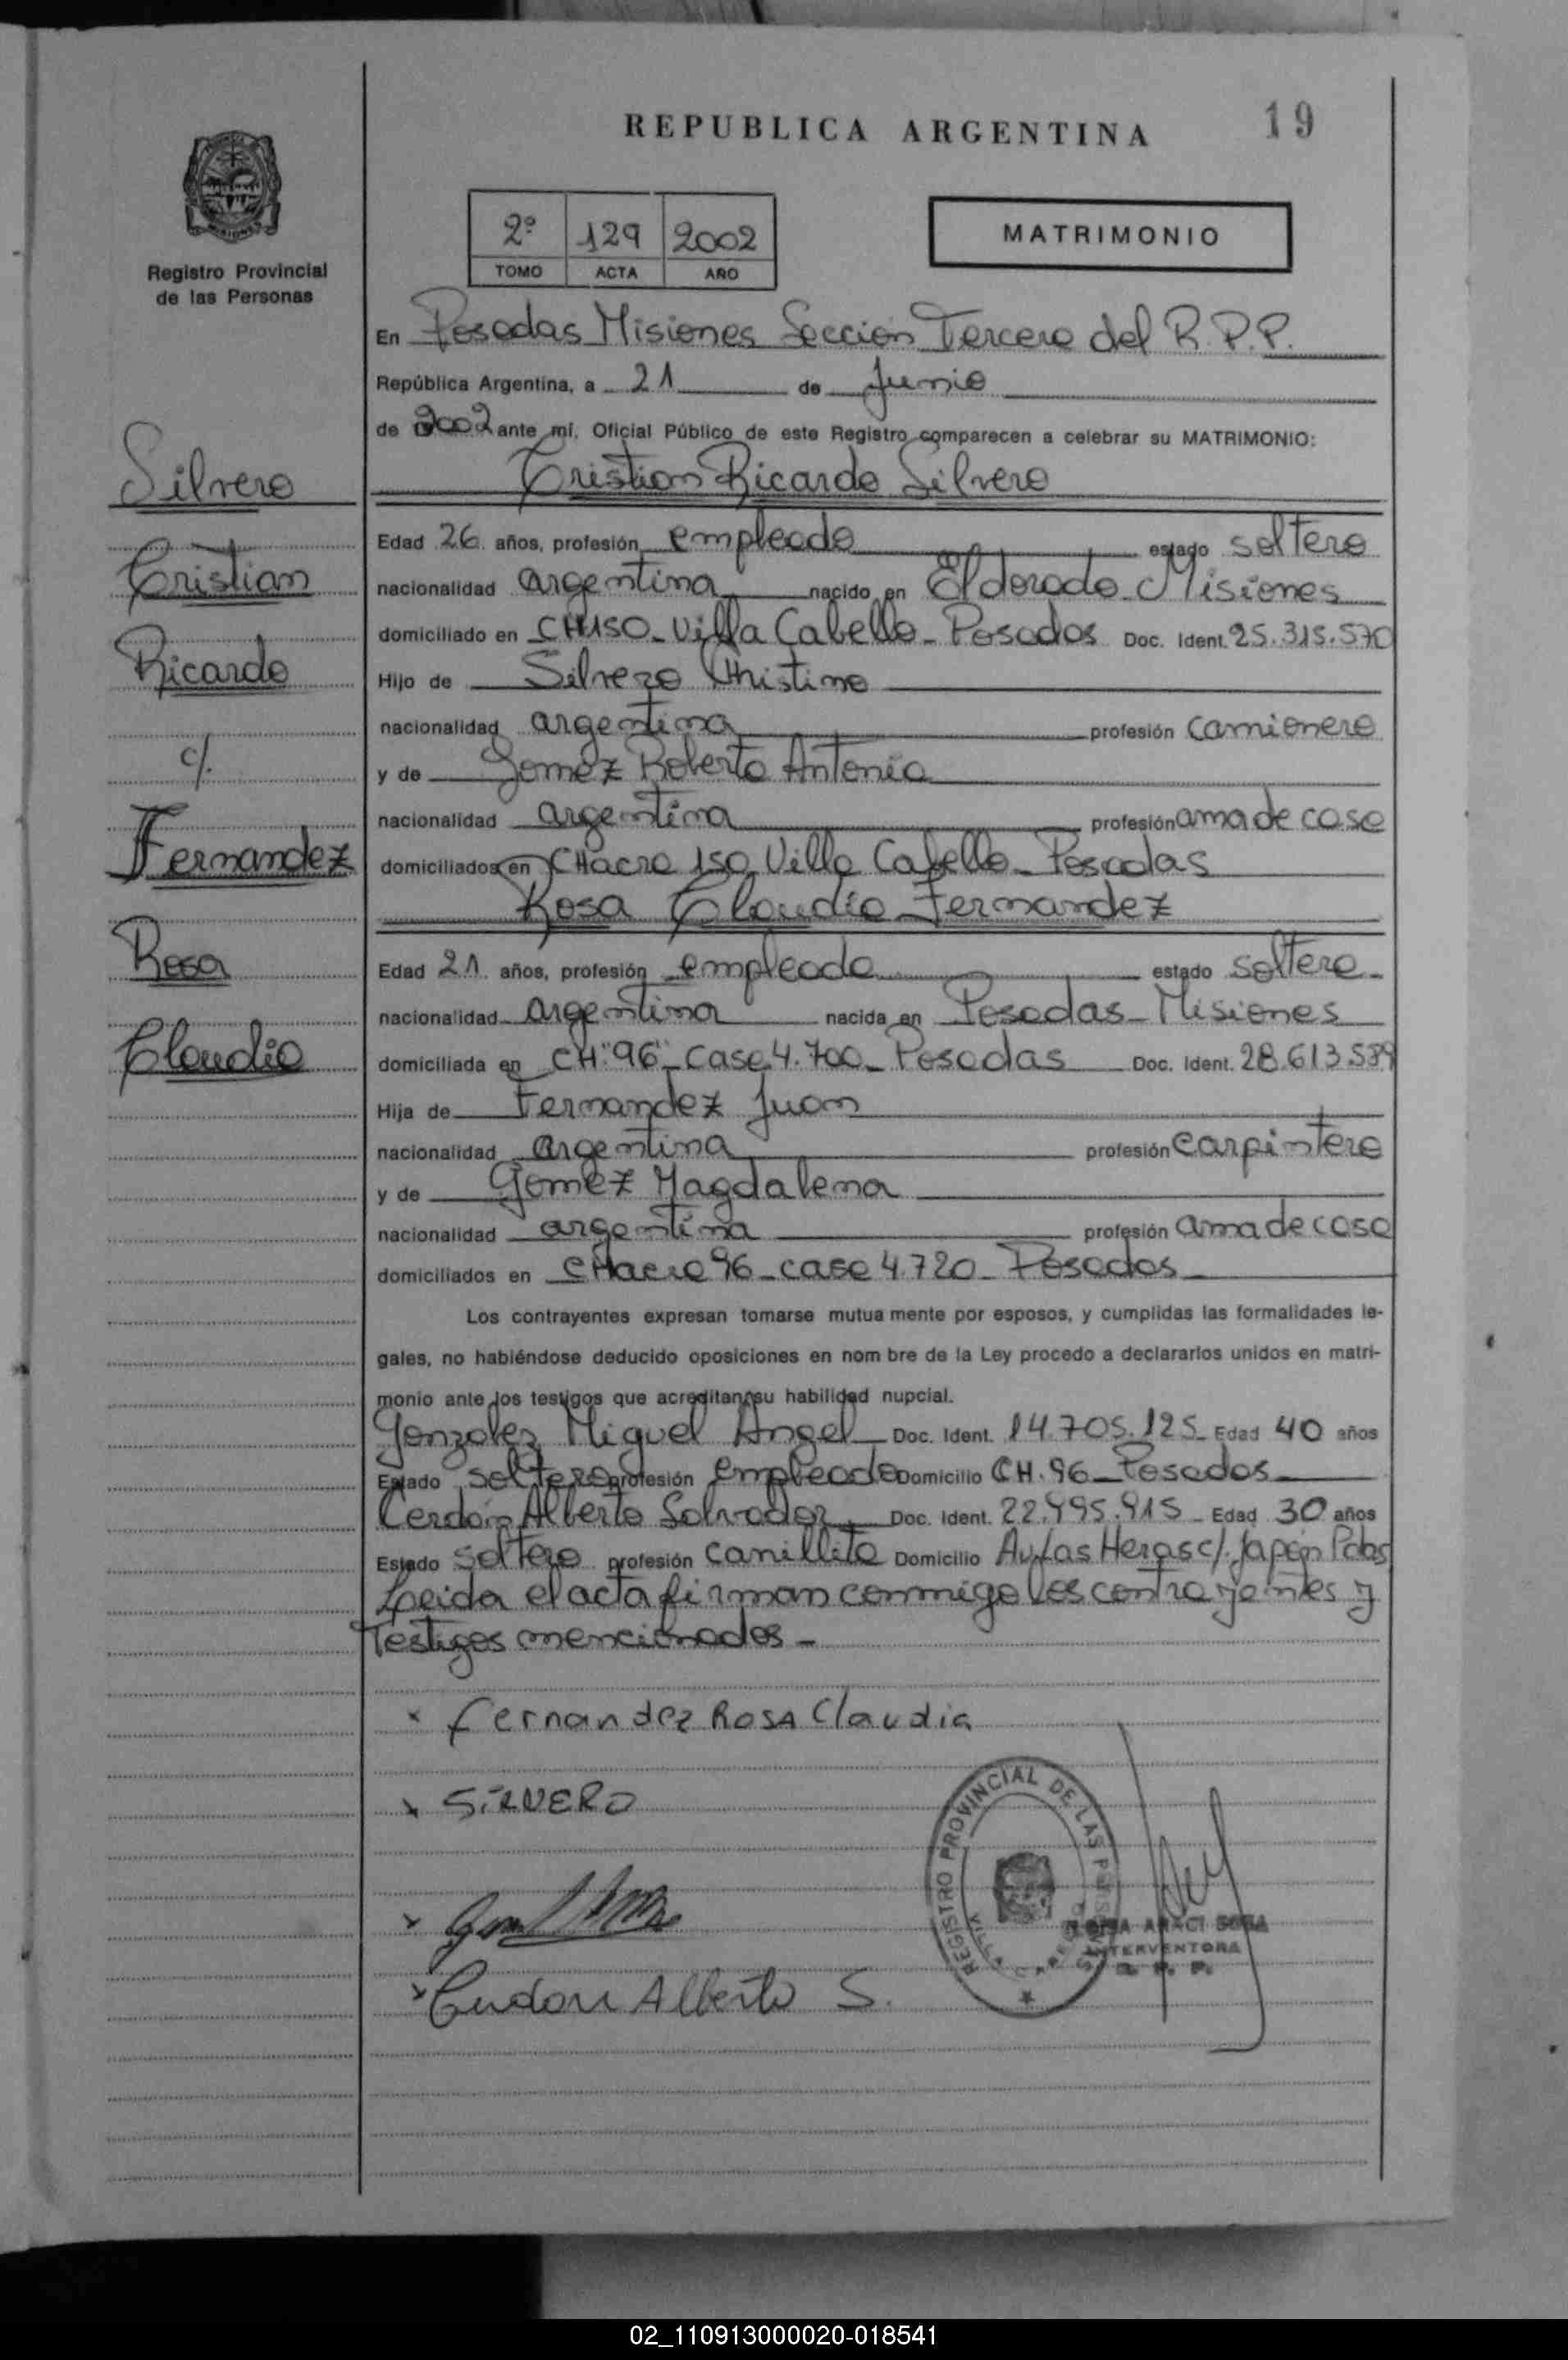 REPUBLICA ARGENTINA 19
2º 129 2002
TOMO ACTA AÑO
MATRIMONIO
Registro Provincial
de las Personas
En Posadas Misiones Sección Tercera del R.P.P.
República Argentina, a 21 de Junio
de 2002 ante mí, Oficial Público de este Registro comparecen a celebrar su MATRIMONIO:
Silvero
Cristian Ricardo Silvero
Edad 26 años, profesión empleado estado soltero
Cristian
nacionalidad argentina nacido en Eldorado Misiones
domiciliado en CH150_Villa Cabello_Posadas Doc. Ident. 25.315.570
Ricardo
Hijo de Silvero Christino
nacionalidad argentina profesión camionero
c/.
y de Gomez Roberta Antonia
nacionalidad argentina profesión ama de casa
Fernandez
domiciliados en CHacra 150 Villa Cabello_Posadas
Rosa Claudia Fernandez
Rosa
Edad 21 años, profesión empleada estado soltera
nacionalidad argentina nacida en Posadas_Misiones
Claudia
domiciliada en CH"96"_Casa 4.700_Posadas Doc. Ident. 28.613.589
Hija de Fernandez Juan
nacionalidad argentina profesión carpintero
y de Gomez Magdalena
nacionalidad argentina profesión ama de casa
domiciliados en CHacra 96_casa 4.720_Posadas
Los contrayentes expresan tomarse mutua mente por esposos, y cumplidas las formalidades le-
gales, no habiéndose deducido oposiciones en nom bre de la Ley procedo a declararlos unidos en matri-
monio ante los testigos que acreditan su habilidad nupcial.
Gonzalez Miguel Angel Doc. Ident. 14.705.125 Edad 40 años
Estado soltero profesión empleado Domicilio CH.96_Posadas
Cerdán Alberto Salvador Doc. Ident. 22.995.915 Edad 30 años
Estado soltero profesión canillita Domicilio Av. Las Heras c/. Japón Pdas
Leida el acta firman conmigo los contrayentes y
Testigos mencionados_
x Fernandez ROSA Claudia
x SILVERO
x
x Alberto S.
REGISTRO PROVINCIAL DE LAS PERSONAS
SOSA
INTERVENTORA
R. P. P.
02_110913000020-018541